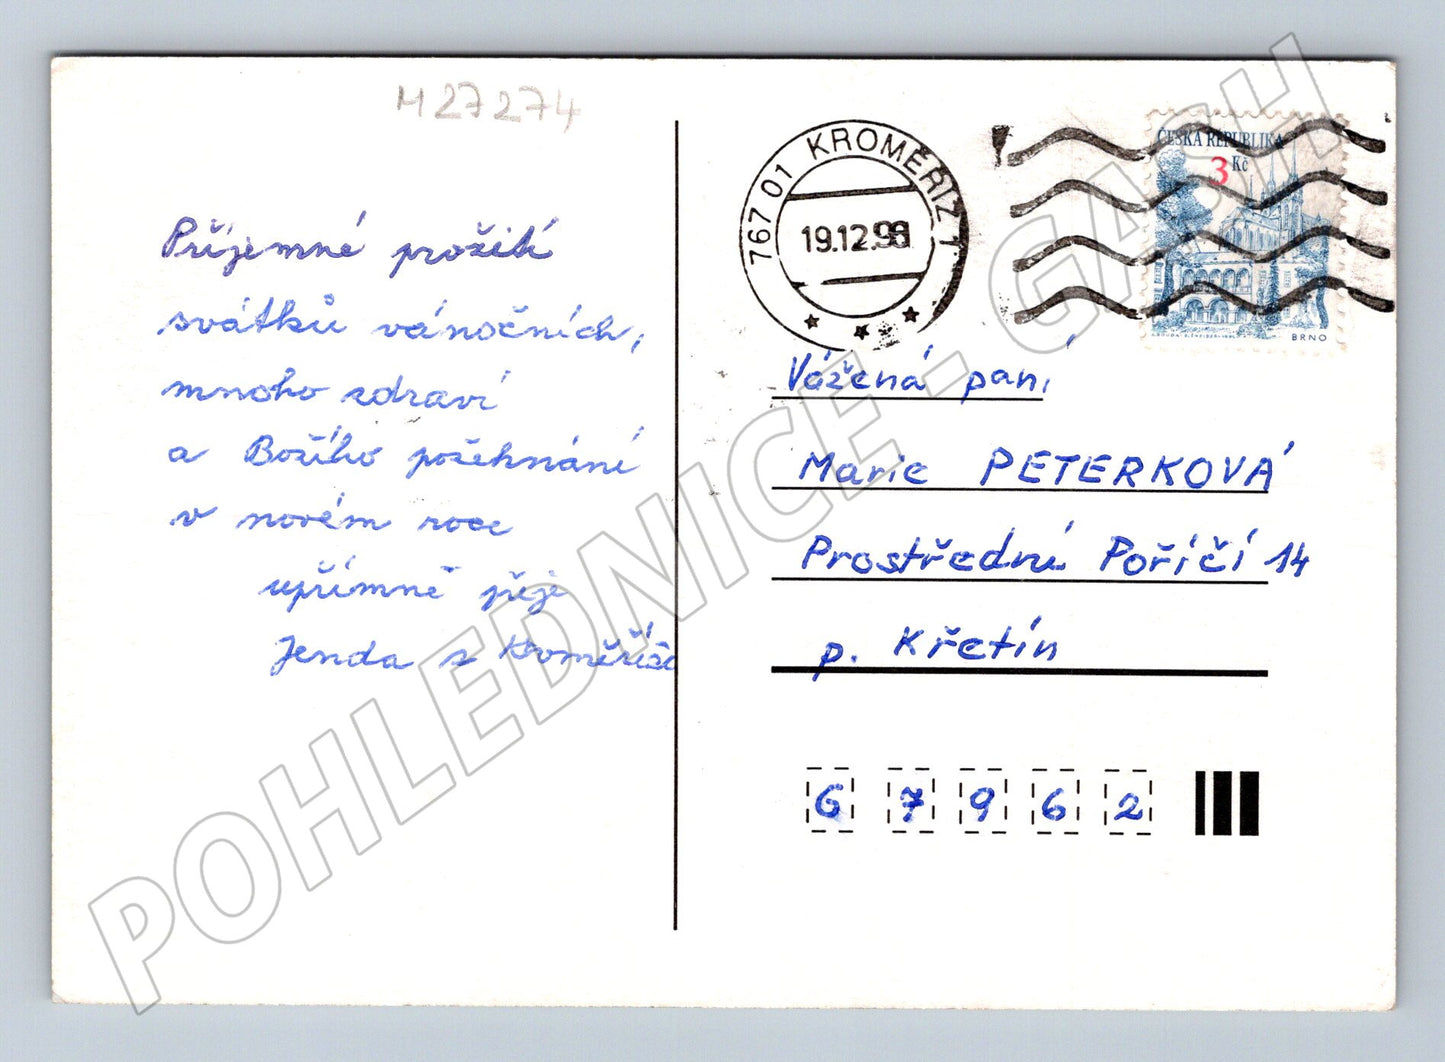 M27274
Příjemné prožití
svátků vánočních,
mnoho zdraví
a Božího požehnání
v novém roce
upřímně přeje
Jenda z Kroměříže
767 01 KROMĚŘÍŽ 1
19.12.98
ČESKÁ REPUBLIKA
3 Kč
BRNO
Vážená paní
Marie PETERKOVÁ
Prostřední Poříčí 14
p. Křetín
67962
POHLEDNICE - GASH